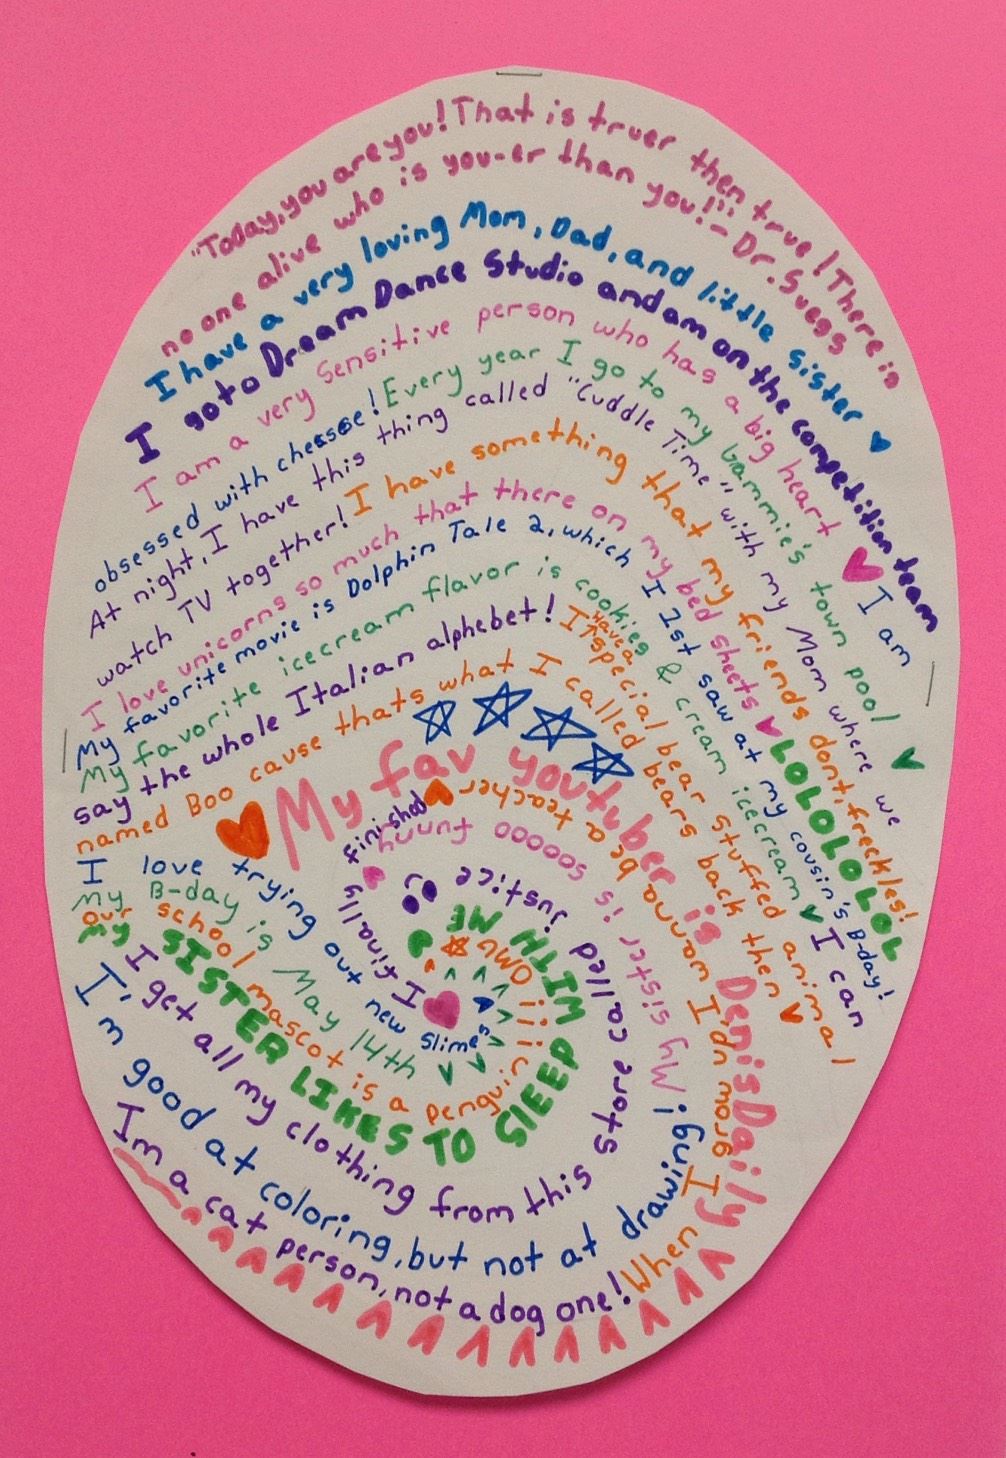 "Today, you are you! That is truer then true! There is
no one alive who is you-er than you!"- Dr. Suess
I have a very loving Mom, Dad, and little sister
I go to Dream Dance Studio and am on the competition team
I am a very Sensitive person who has a big heart I am
obsessed with cheese! Every year I go to my Gammie's town pool
At night, I have this thing called "Cuddle Time" with my Mom where we
watch TV together! I have something that my friends dont, freckles!
I love unicorns so much that there on my bed sheets LOLOLOLOL
My favorite movie is Dolphin Tale 2, which I 1st saw at my cousin's B-day!
My favorite icecream flavor is cookies & cream icecream I can
say the whole Italian alphebet! I have a special bear stuffed animal
named Boo cause thats what I called bears back then
My fav youtuber is DenisDaily
I love trying out new slimes
My B-day is May 14th
our school mascot is a penguin
My SISTER LIKES TO SlEEP WITH ME
I get all my clothing from this store called justice
I'm good at coloring, but not at drawing! My sister is sooooo funny
Im a cat person, not a dog one! When I grow up, I wanna be a teacher
I finally finished
OWO